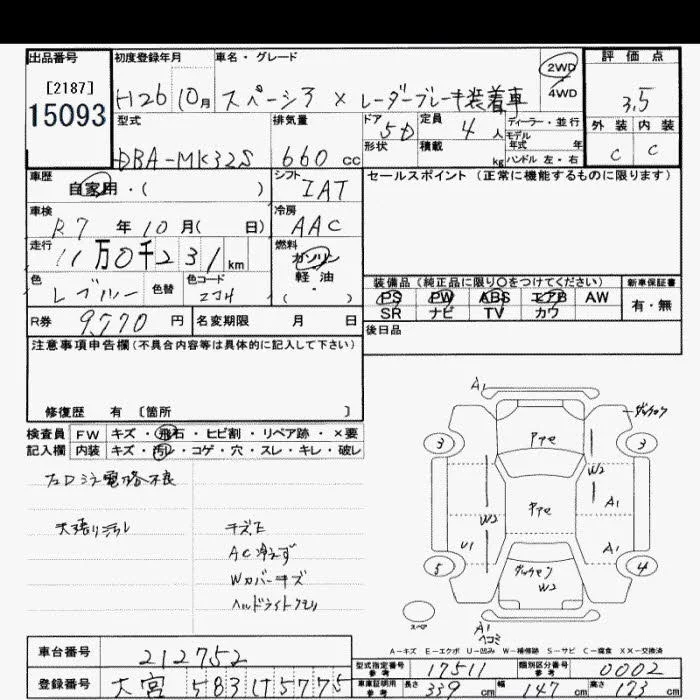 出品番号 初度登録年月 車名・グレード 評価点
[2187]
15093
H26 10月 スペーシア X レーダーブレーキ装着車
2WD
4WD
3.5
型式 排気量 ドア 定員 ディーラー・並行 外装 内装
DBA-MK32S 660 cc 5D 4人 モデル年式 年式 C C
形状 積載 kg ハンドル 左・右
車歴 シフト セールスポイント (正常に機能するものに限ります)
自家用・( ) IAT
車検 冷房
R7年10月( 日) AAC
走行 燃料
11万0千231km ガソリン
軽油
( )
色 色替 色コード
Lブルー ZJ4
装備品 (純正品に限り○をつけてください) 新車保証書
PS PW ABS エアB AW 有・無
SR ナビ TV カワ
R券 9,770円 名変期限 月 日
後日品
注意事項申告欄(不具合内容等は具体的に記入して下さい)
修復歴 有 〔箇所 〕
検査員 FW キズ・飛石・ヒビ割・リペア跡・×要
記入欄 内装 キズ・汚レ・コゲ・穴・スレ・キレ・破レ
電格不良
天張り汚レ
キズ.E
AC冷えず
Wカバーキズ
ヘッドライトクモリ
A1
3 3
W2
A1
W2
U1 A1
5 4
W2
スペア
A1
ヘコミ
A−キズ E−エクボ U−凹み W−補修跡 S−サビ C−腐食 XX−交換済
車台番号 212752
登録番号 大宮 583 け 5775
型式指定番号 参考 17511 類別区分番号 参考 0002
車庫証明用 参考 長さ 339cm 幅 147cm 高さ 173cm